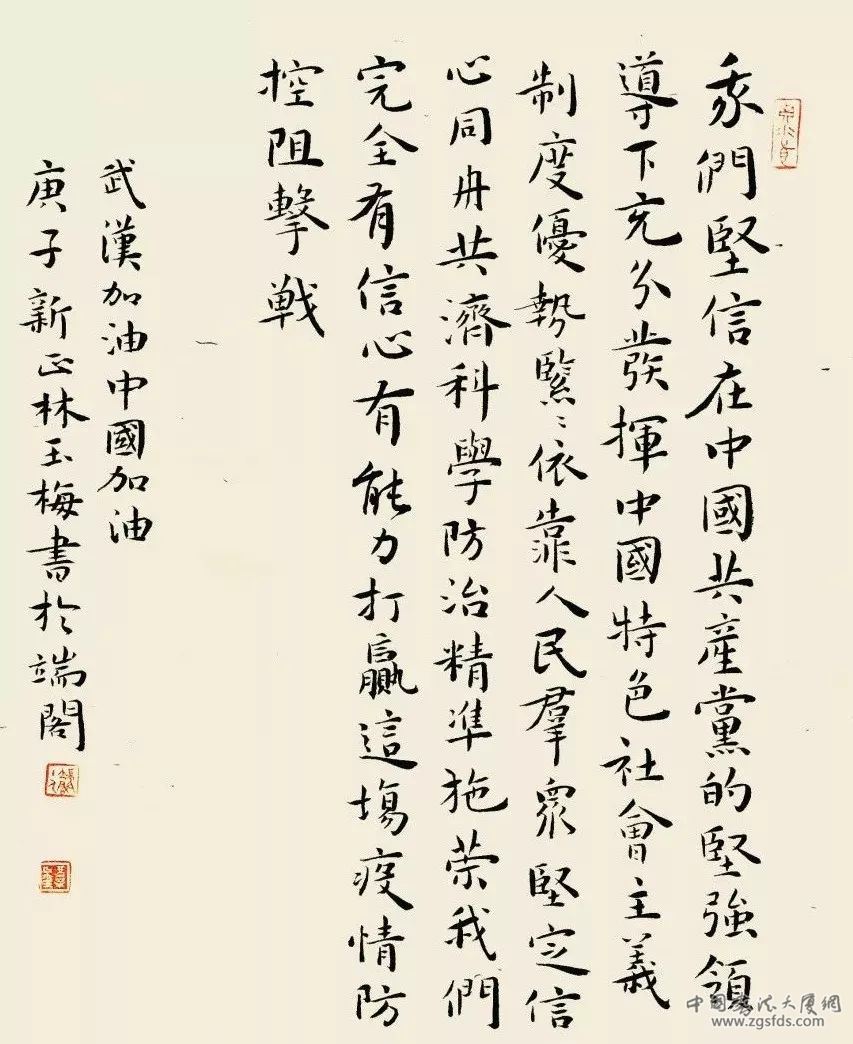 我們堅信在中國共産黨的堅強領
導下充分發揮中國特色社會主義
制度優勢緊〻依靠人民羣衆堅定信
心同舟共濟科學防治精準施策我們
完全有信心有能力打贏這場疫情防
控阻擊戦
武漢加油中國加油
庚子新正林玉梅書於端閣
中國書法大厦網
www.zgsfds.com